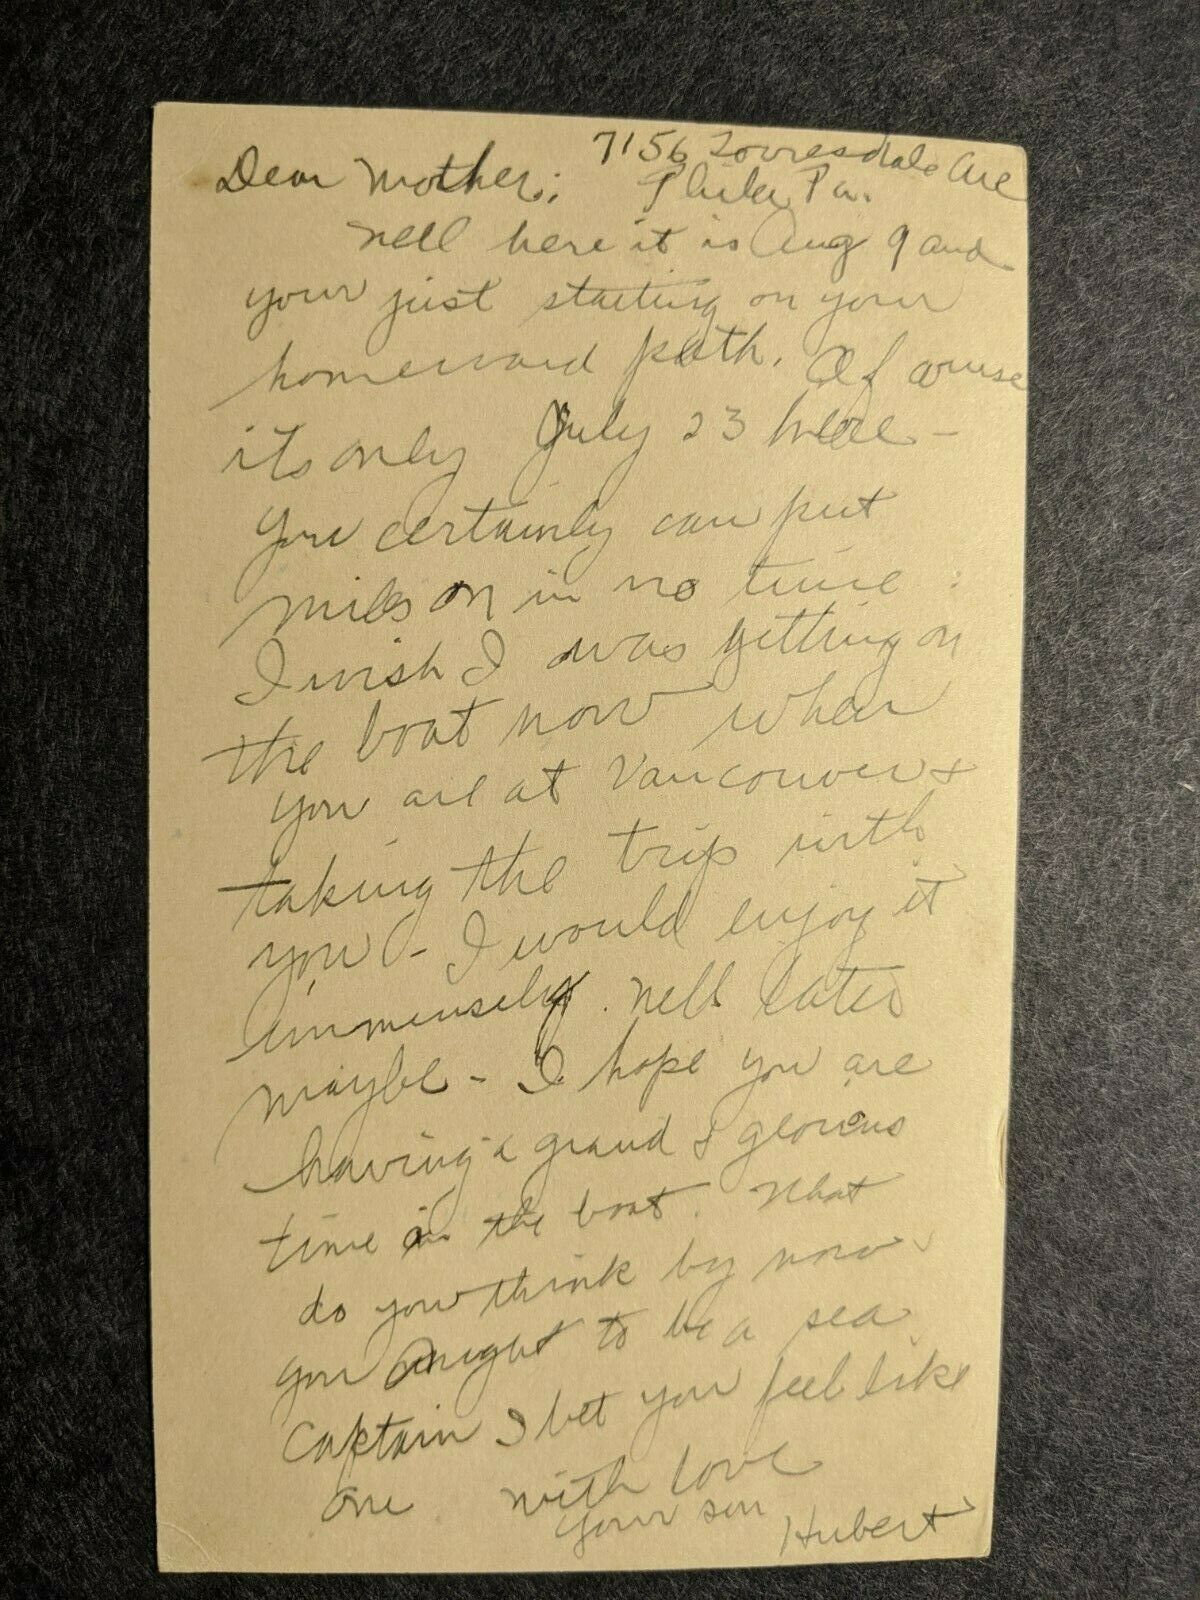 7156 Torresdale Ave
Dear Mother; Phila Pa.
Well here it is Aug 9 and
your just starting on your
homeward path. Of course
its only July 23 here -
You certainly can put
miles on in no time.
I wish I was getting on
the boat now when
you are at Vancouver &
taking the trip with
you - I would enjoy it
immensely. Well later
maybe - I hope you are
having a grand & glorious
time in the boat. What
do you think by now
you ought to be a sea
captain I bet you feel like
one with love
your son Hubert